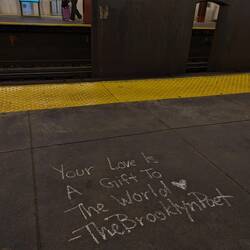 Your Love Is
A Gift To
The World ♥
-TheBrooklynPoet